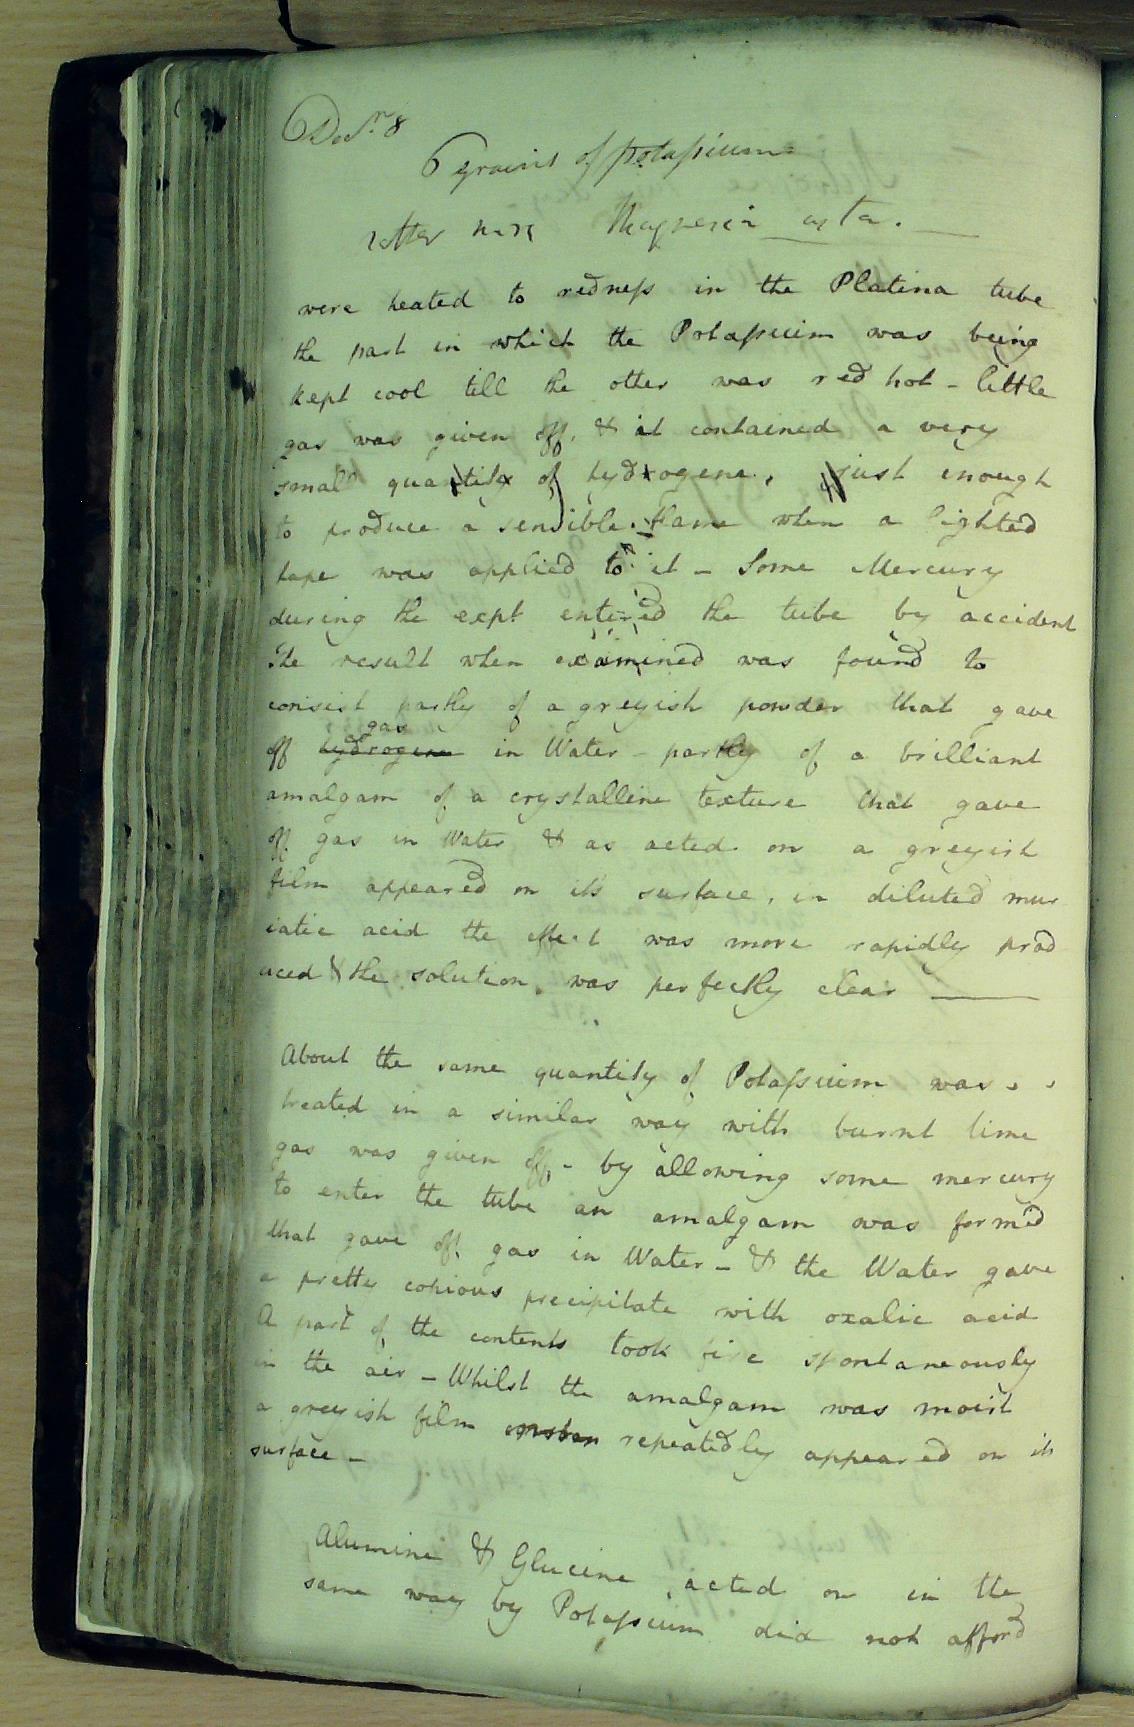 Decr. 8
6 grains of potassium
Magnesia usta.
were heated to redness in the Platina tube
the part in which the Potassium was being
kept cool till the other was red hot - little
gas was given off, & it contained a very
small quantity of hydrogene, just enough
to produce a sensible flame when a lighted
taper was applied to it - Some Mercury
during the expt entered the tube by accident
The result when examined was found to
consist partly of a greyish powder that gave
off hydrogene gas in Water - partly of a brilliant
amalgam of a crystalline texture that gave
off gas in Water & as acted on a greyish
film appeared on its surface, in diluted mur
iatic acid the effect was more rapidly prod
uced & the solution was perfectly clear ———
About the same quantity of Potassium was
treated in a similar way with burnt lime
gas was given off - by allowing some mercury
to enter the tube an amalgam was form'd
that gave off gas in Water - & the Water gave
a pretty copious precipitate with oxalic acid
A part of the contents took fire spontaneously
in the air - Whilst the amalgam was moist
a greyish film repeatedly appeared on its
surface -
Alumine & Glucine acted on in the
same way by Potassium did not afford